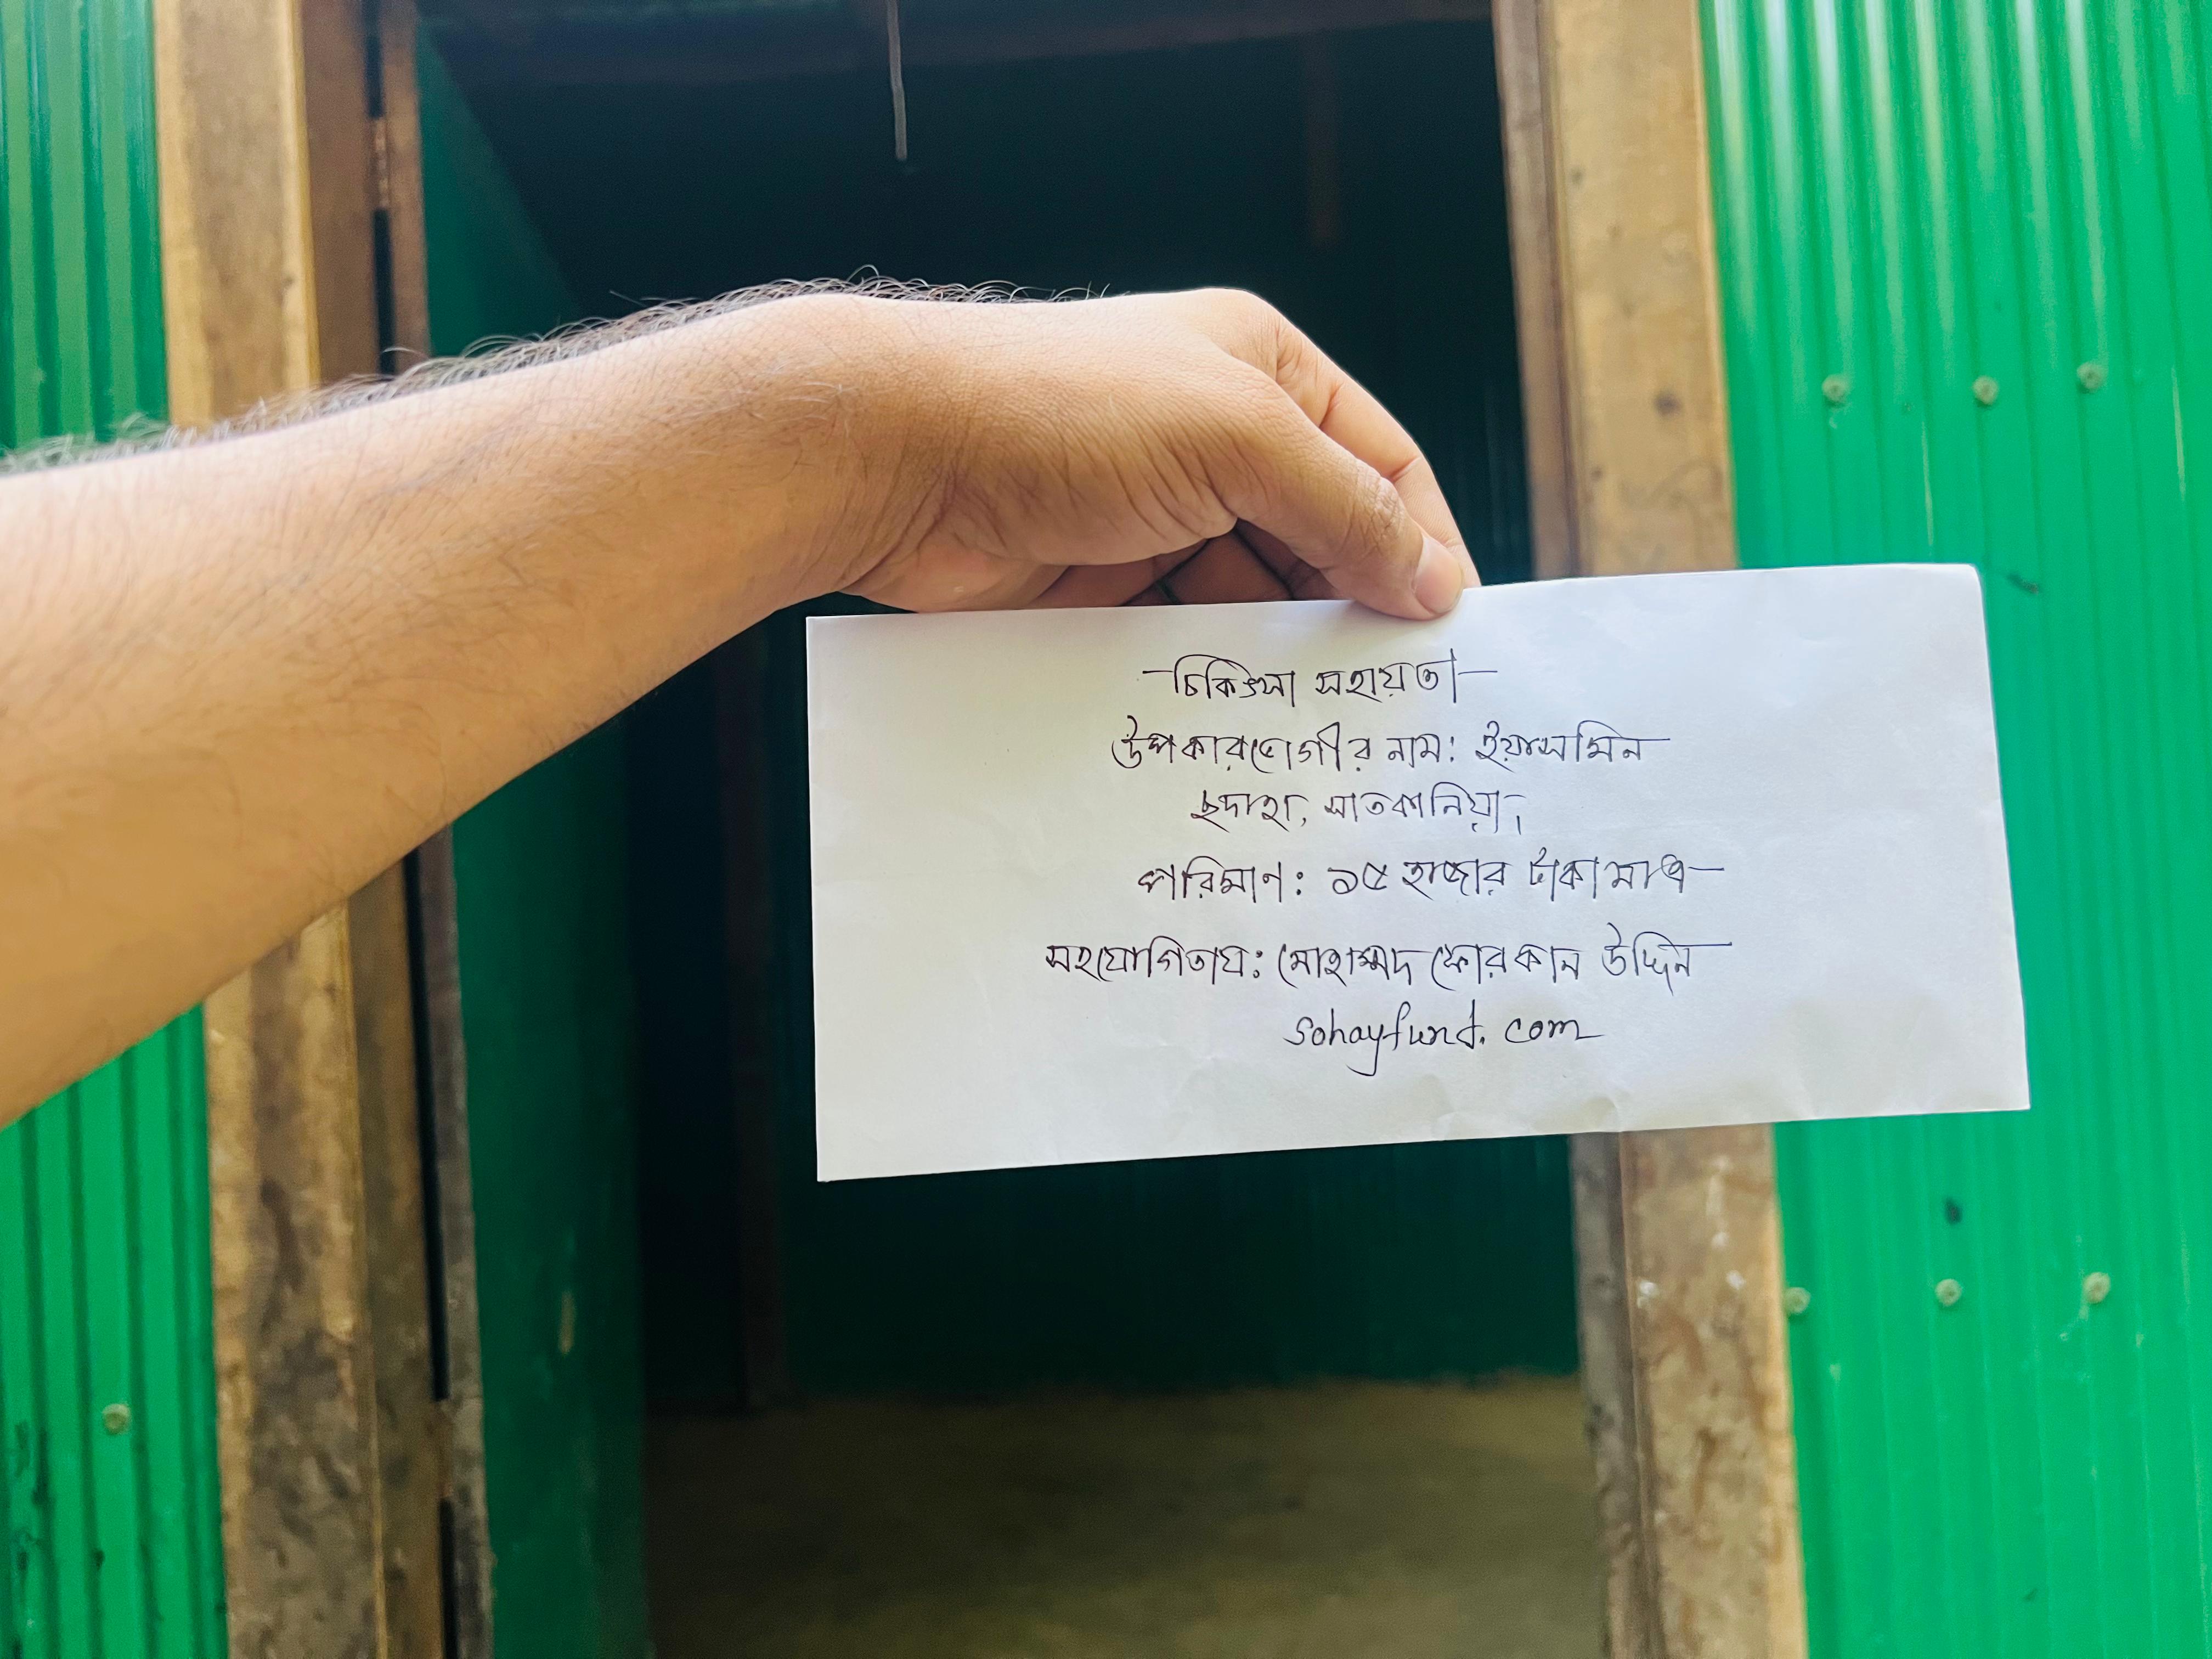 চিকিৎসা সহায়তা
উপকারভোগীর নাম: ইয়াসমিন
ছদাহা, সাতকানিয়া,
পরিমাণ: ১৫ হাজার টাকা মাত্র
সহযোগিতায়: মোহাম্মদ ফোরকান উদ্দিন
sohayfund.com